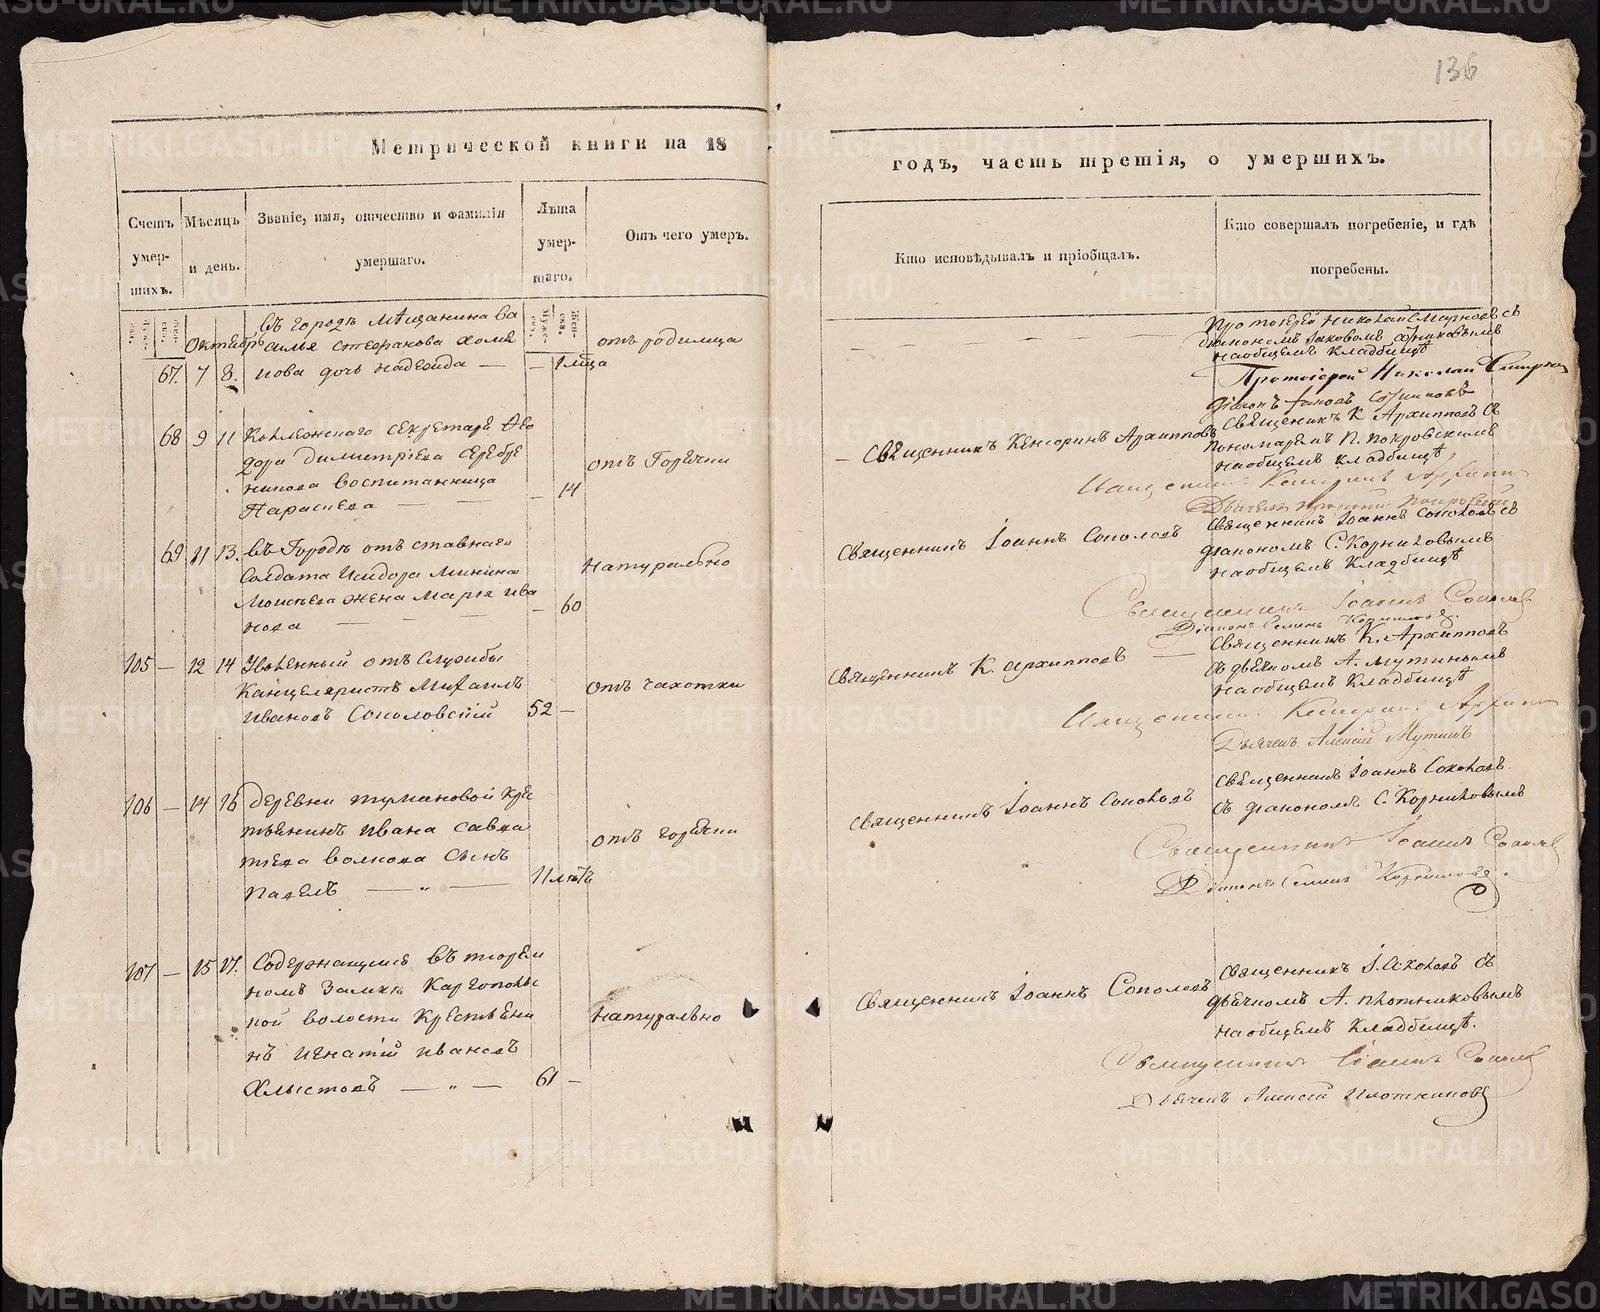 136
Метрической книги на 18
годъ, часть третія, о умершихъ.
Счетъ умер-шихъ.
Мѣсяцъ и день.
Званіе, имя, отчество и фамилія умершаго.
Лѣта умер-шаго.
Отъ чего умеръ.
Кто исповѣдывалъ и пріобщалъ.
Кто совершалъ погребеніе, и гдѣ погребены.
Октябрь
67. 7 8.
въ городѣ мѣщанина Ва
силья Стефанова
нова дочь Надежда —
— 1 мѣца
отъ родимца
Протоіерей Николай Смирновъ съ
діакономъ Іаковомъ
на общемъ кладбищѣ
Протоіерей Николай Смирнов
68 9 11
Коллежскаго секретаря Ѳео
дора Димитріева Серебре
никова воспитанница
Параскева —
— 14
отъ Горячки
— Священникъ Кенсоринъ Архипповъ
Священникъ К. Архипповъ съ
Пономаремъ П. Покровскимъ
на общемъ кладбищѣ
69 11 13.
въ Городѣ отставнаго
Солдата Исидора Минина
Моисѣева жена Марія Ива
нова — — —
— 60
Натурально
Священникъ Іоаннъ Соколовъ
Священникъ Іоаннъ Соколовъ съ
діакономъ С. Корниловымъ
на общемъ кладбищѣ
Священникъ Іоаннъ Соколов
Діаконъ Семенъ Корниловъ.
105 — 12 14
Уволенный отъ службы
Канцеляристъ Михаилъ
Ивановъ Соколовскій
52 —
отъ чахотки
Священникъ К. Архипповъ —
Священникъ К. Архипповъ
съ дьячкомъ А. Мутинымъ
на общемъ кладбищѣ
Дьячекъ Алексій Мутинъ
106 — 14 16
Деревни Тумановой Крес
тьянина Ивана Савва
тѣева Волкова сынъ
Павелъ — „ —
11 лѣтъ
отъ горячки
Священникъ Іоаннъ Соколовъ
Священникъ Іоаннъ Соколовъ
съ діакономъ С. Корниловымъ
Священникъ Іоаннъ Соколов
Діаконъ Семенъ Корниловъ.
107 — 15 17.
Содержащийся въ тюрем
номъ замкѣ Каргополь
ской волости Крестьяни
нъ Игнатій Ивановъ
Хлыстовъ — „ —
61 —
Натурально
Священникъ Іоаннъ Соколовъ
Священникъ І. Соколовъ съ
дьячкомъ А. Плотниковымъ
на общемъ кладбищѣ.
Священникъ Іоаннъ Соколов
Дьячекъ Алексій Плотниковъ
METRIKI.GASO-URAL.RU